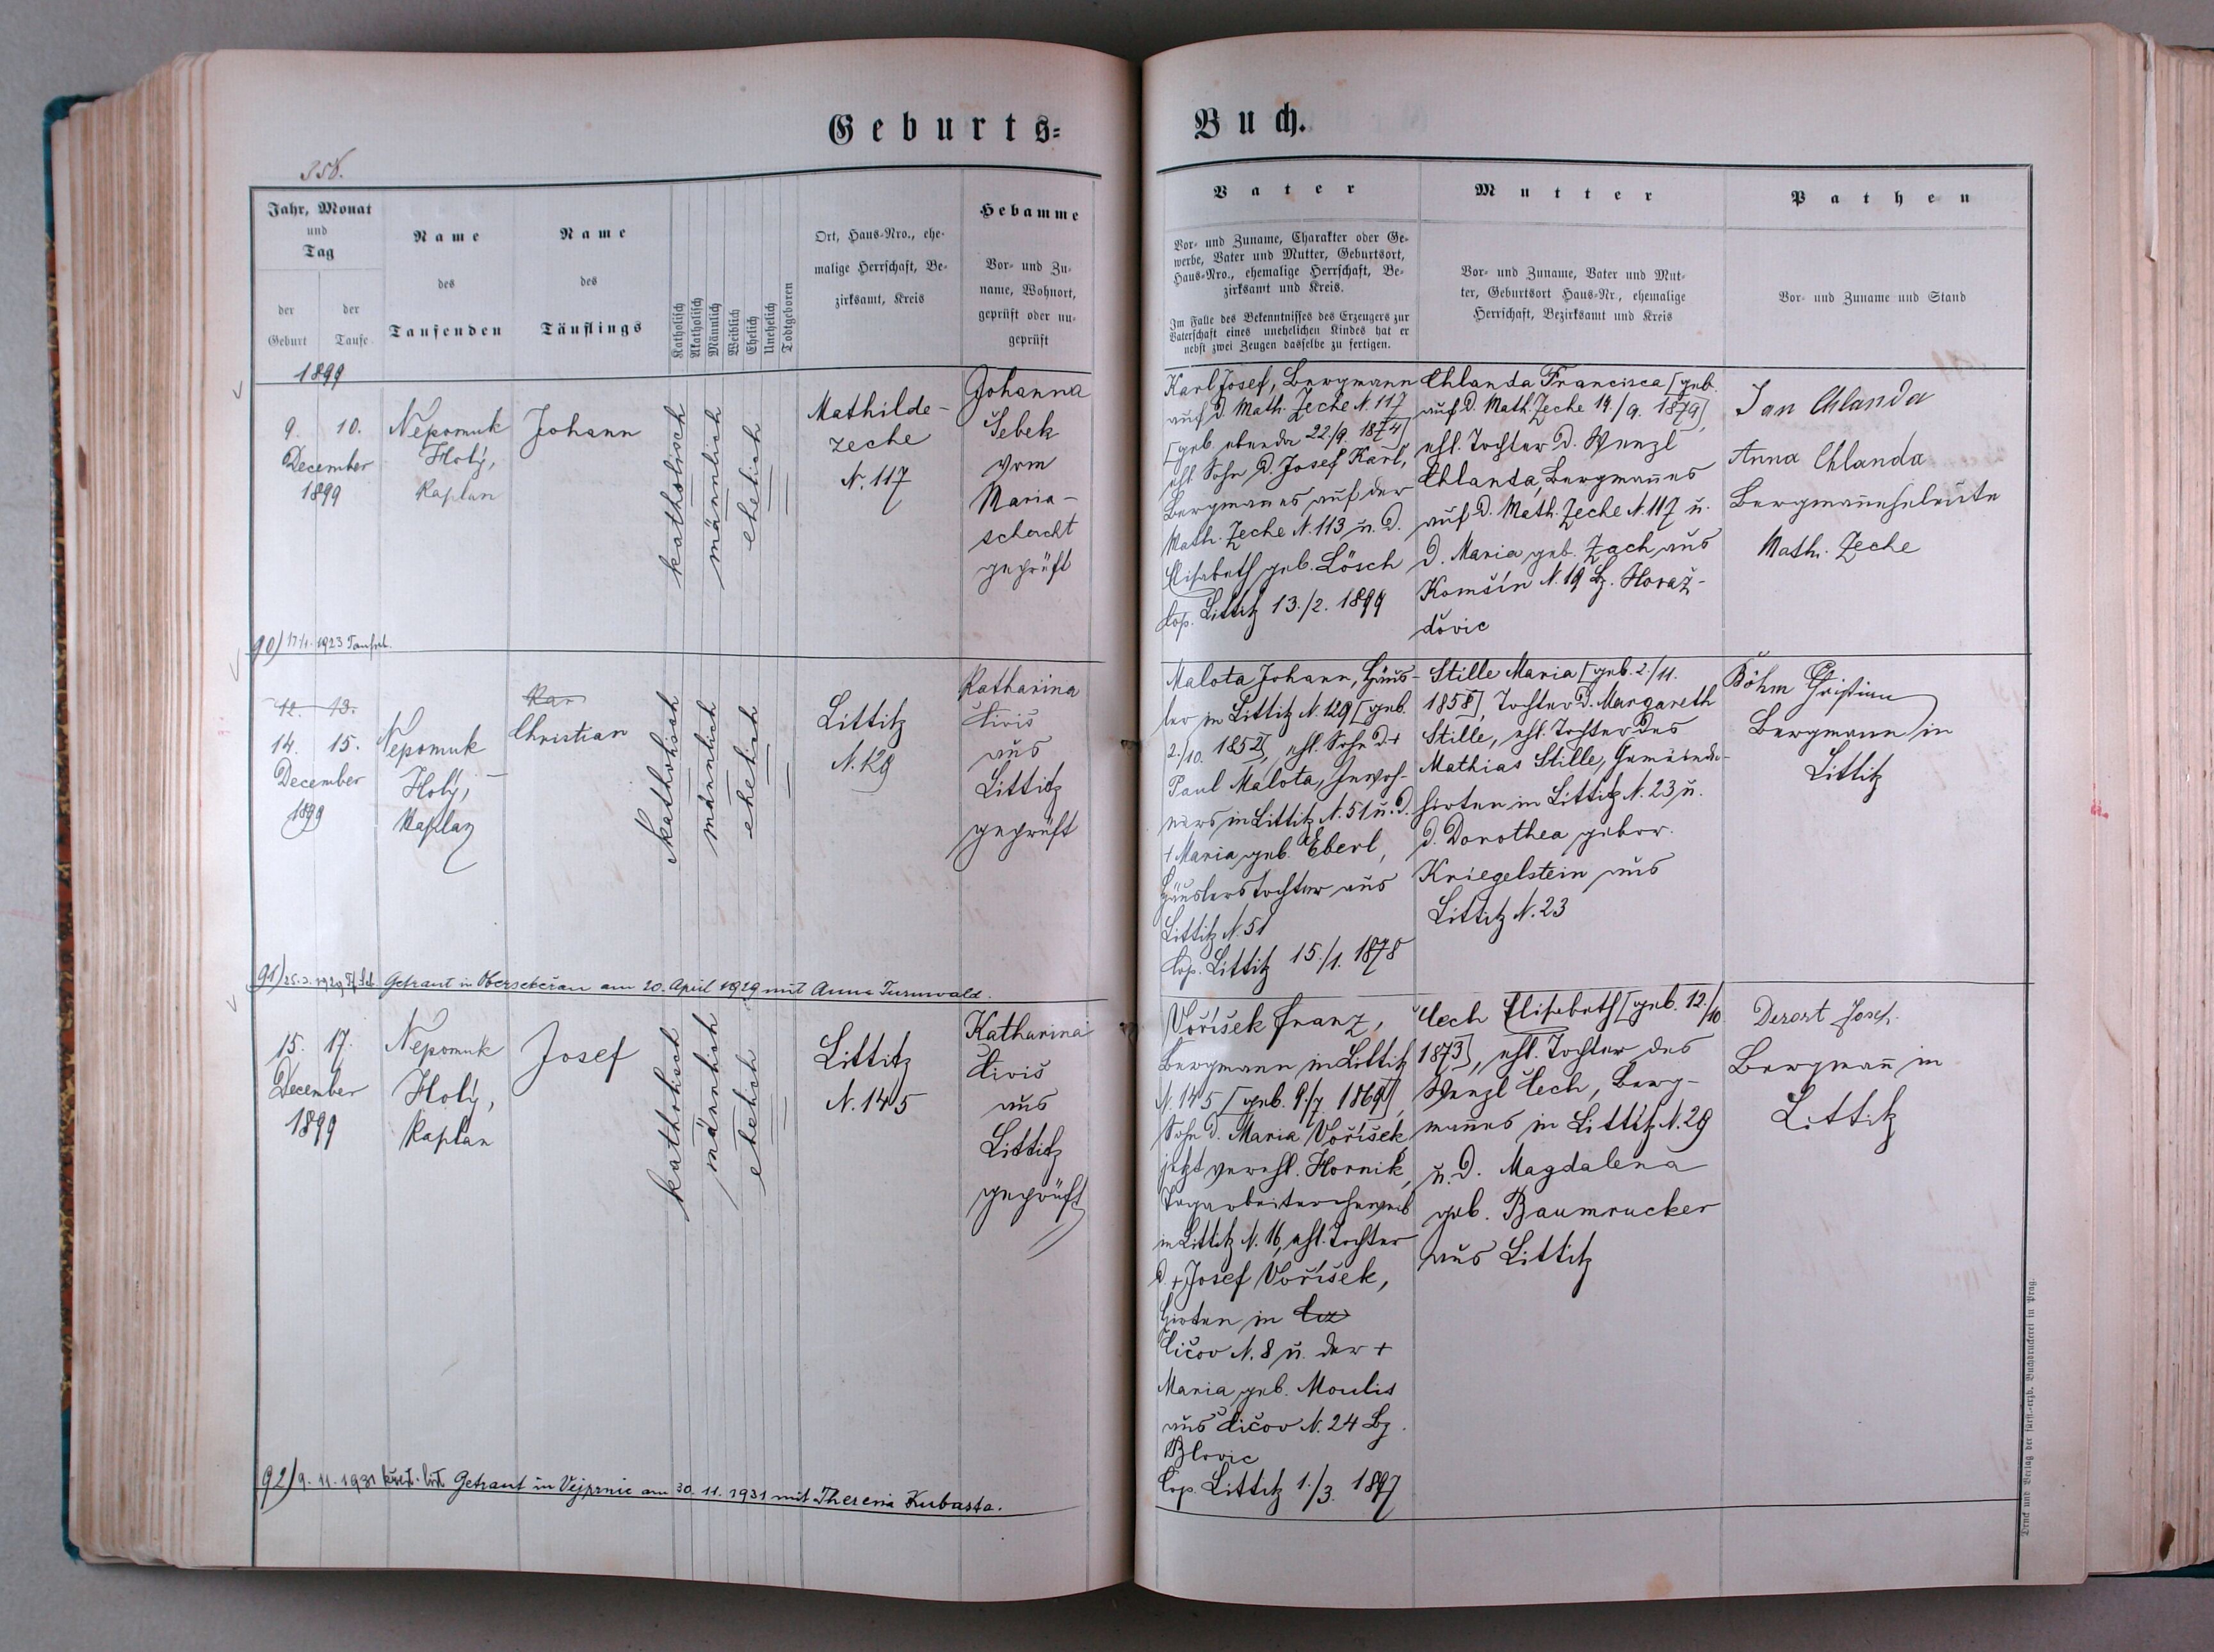 Geburts=
Buch.
358.
Jahr, Monat
und
Tag
der
Geburt
der
Taufe
Name
des
Taufenden
Name
des
Täuflings
Katholisch
Akatholisch
Männlich
Weiblich
Ehelich
Unehelich
Todtgeboren
Ort, Haus-Nro., ehe-
malige Herrschaft, Be-
zirksamt, Kreis
Hebamme
Vor- und Zu-
name, Wohnort,
geprüft oder un-
geprüft
Vater
Vor- und Zuname, Charakter oder Ge-
werbe, Vater und Mutter, Geburtsort,
Haus-Nro., ehemalige Herrschaft, Be-
zirksamt und Kreis.
Im Falle des Bekenntnisses des Erzeugers zur
Vaterschaft eines unehelichen Kindes hat er
nebst zwei Zeugen dasselbe zu fertigen.
Mutter
Vor- und Zuname, Vater und Mut-
ter, Geburtsort Haus-Nr., ehemalige
Herrschaft, Bezirksamt und Kreis
Pathen
Vor- und Zuname und Stand
1899
9. 10.
December
1899
Nepomuk
Holý,
Kaplan
Johann
katholisch
männlich
ehelich
Mathilde-
zeche
N. 117
Johanna
Šebek
vom
Maria-
schacht
geprüft
Karl Josef, Bergmann
auf d. Math. Zeche N. 117
[geb. ebenda 22./9. 1874]
ehl. Sohn d. Josef Karl,
Bergmanns auf der
Math. Zeche N. 113 u. d.
Elisabeth geb. Lösch
Cop. Littitz 13./2. 1899
Chlanda Francisca [geb.
auf d. Math. Zeche 14./9. 1879],
ehl. Tochter d. Wenzl
Chlanda, Bergmannes
auf d. Math. Zeche N. 117 u.
d. Maria geb. Zach aus
Komšín N. 19 Bz. Horaž-
dovic
Jan Chlanda
Anna Chlanda
Bergmannseheleute
Math. Zeche
90) 1923 Taufsch.
12. 13.
14. 15.
December
1899
Nepomuk
Holý,
Kaplan
Kar
Christian
katholisch
männlich
ehelich
Littitz
N. 129
Katharina
Čiviš
aus
Littitz
geprüft
Malota Johann, Häus-
ler in Littitz N. 129 [geb.
2./10. 1852], ehl. Sohn d. +
Paul Malota, Inwoh-
ners in Littitz N. 51 u. d.
+ Maria geb. Eberl,
Häuslerstochter aus
Littitz N. 51
Cop. Littitz 15./1. 1878
Stille Maria [geb. 2./11.
1858], Tochter d. Margareth
Stille, ehl. Tochter des
Mathias Stille, Gemeinde-
hirten in Littitz N. 23 u.
d. Dorothea gebor.
Kriegelstein aus
Littitz N. 23
Böhm Christian
Bergmann in
Littitz
91) Getraut in Obersekeran am 20. April 1929 mit Anna Turnwald.
15. 17.
December
1899
Nepomuk
Holý,
Kaplan
Josef
katholisch
männlich
ehelich
Littitz
N. 145
Katharina
Čiviš
aus
Littitz
geprüft
Voříšek Franz,
Bergmann in Littitz
N. 145 [geb. 9./7. 1869],
Sohn d. Maria Voříšek,
jetzt verehl. Hornik,
Tagarbeitersweib
in Littitz N. 16, ehl. Tochter
d. + Josef Voříšek,
Hirten in
Čičov N. 8 u. der +
Maria geb. Moulis
aus Čičov N. 24 Bz.
Blovic
Cop. Littitz 1./3. 1897
Čech Elisabeth [geb. 12./10.
1873], ehl. Tochter des
Wenzl Čech, Berg-
mannes in Littitz N. 29
u. d. Magdalena
geb. Baumrucker
aus Littitz
Derort Josef.
Bergmann in
Littitz
92) 9. 11. 1931 Getraut in Vejprnic am 30. 11. 1931 mit Theresia Kubasta.
Druck und Verlag der fürst.-erzb. Buchdruckerei in Prag.